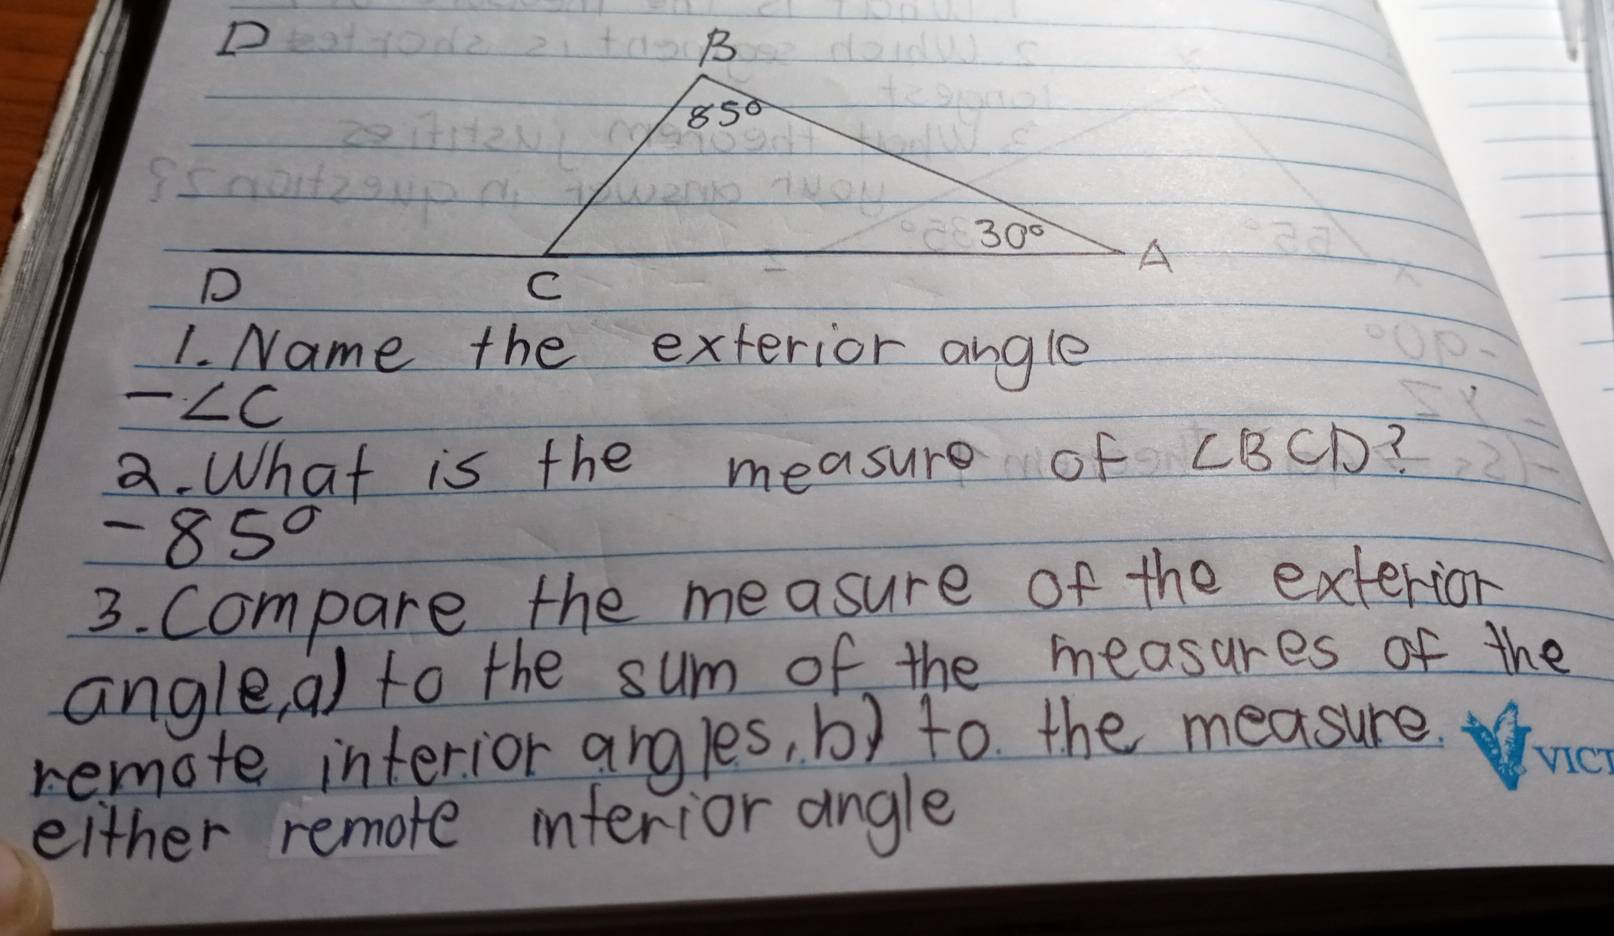 D
B
85°
30°
A
D
C
1. Name the exterior angle
-∠C
2. What is the measure of ∠BCD?
-85°
3. Compare the measure of the exterior
angle, a) to the sum of the measures of the
remote interior angles, b) to the measure
either remote interior angle
VICT